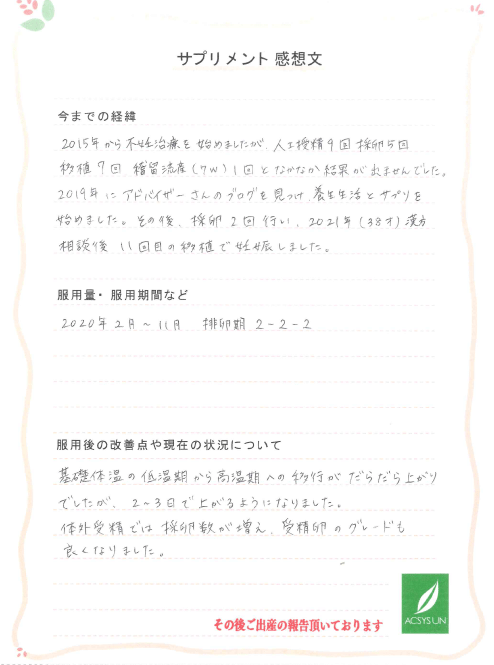 サプリメント 感想文
今までの経緯
2015年から不妊治療を始めましたが、人工授精9回 採卵5回
移植9回 稽留流産(7w)1回となかなか結果が出ませんでした。
2019年にアドバイザーさんのブログを見つけ、養生生活とサプリを
始めました。その後、採卵2回行い、2021年(38才)漢方
相談後 11回目の移植で妊娠しました。
服用量・服用期間など
2020年2月～11月 排卵期 2-2-2
服用後の改善点や現在の状況について
基礎体温の低温期から高温期への移行がだらだら上がり
でしたが、2～3日で上がるようになりました。
体外受精では採卵数が増え、受精卵のグレードも
良くなりました。
その後ご出産の報告頂いております
ACSYSUN